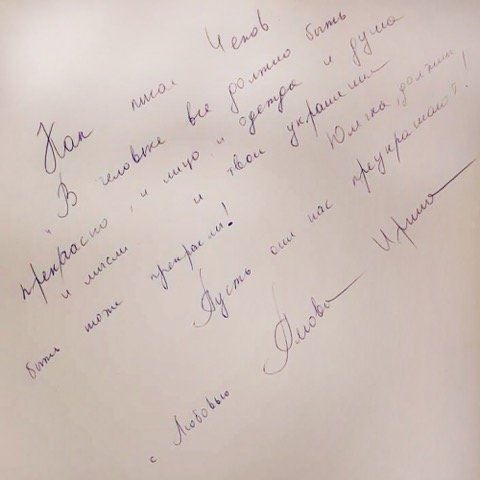 Как писал Чехов
"В человеке все должно быть
прекрасно, и лицо и одежда и душа
и мысли и твои украшения
Юлечка, должны
быть тоже прекрасны!
Пусть они нас преукрашают!
с Любовью Ирина